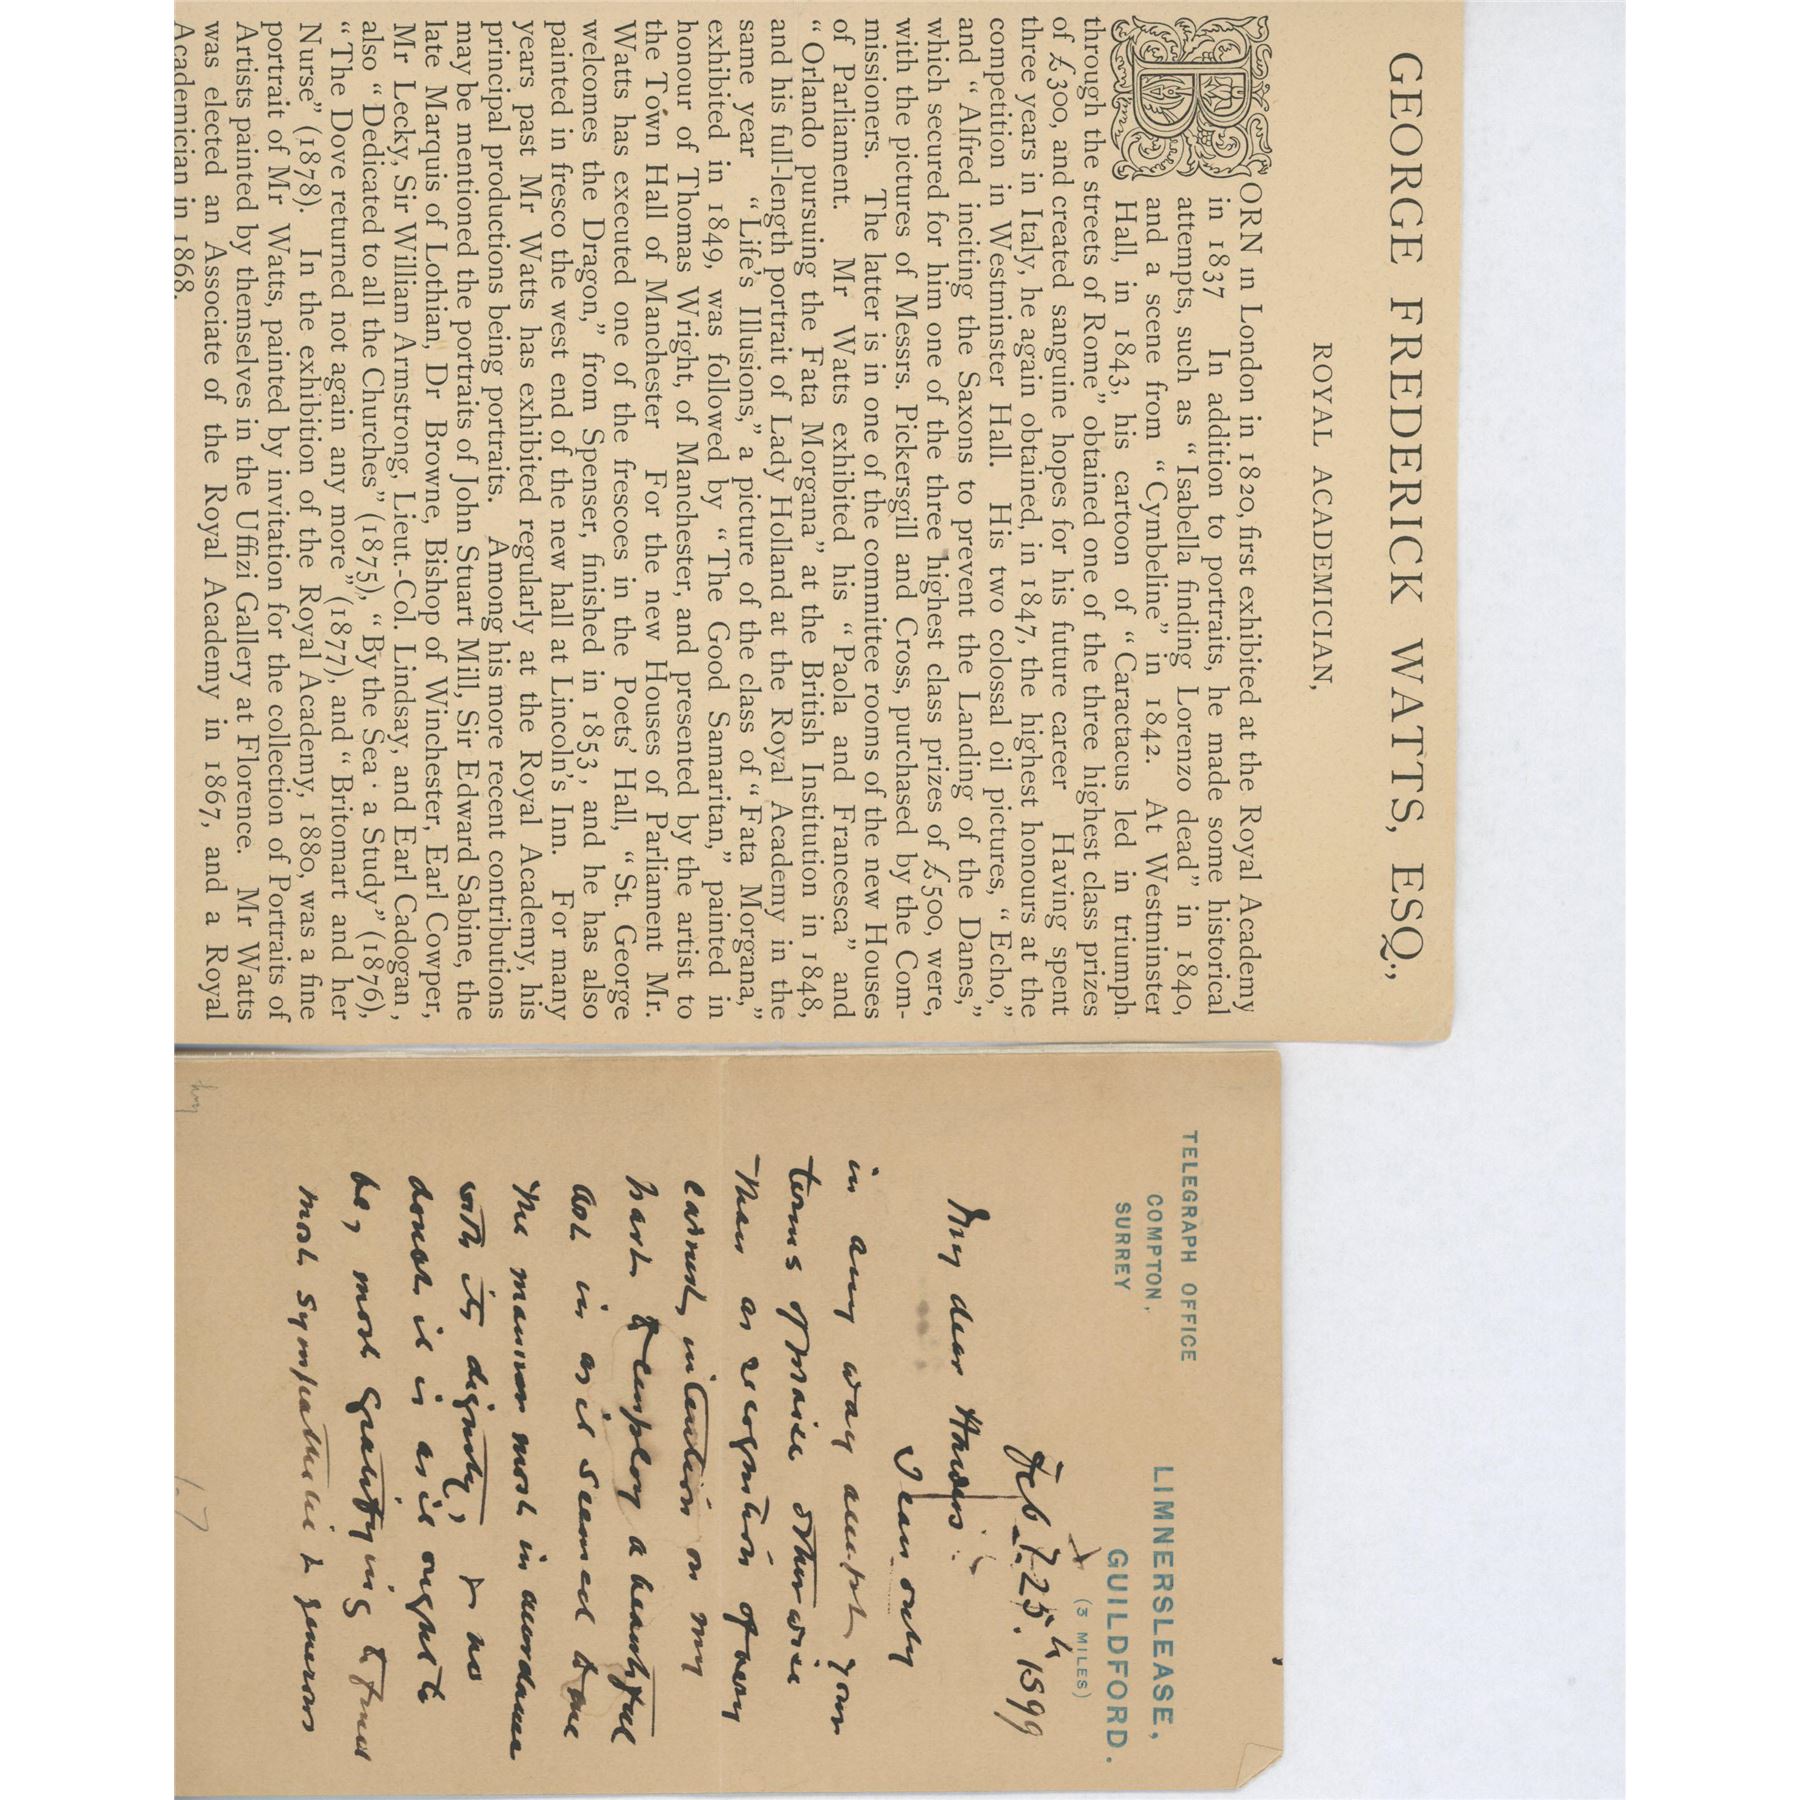 GEORGE FREDERICK WATTS, ESQ.,
ROYAL ACADEMICIAN,
BORN in London in 1820, first exhibited at the Royal Academy
in 1837 In addition to portraits, he made some historical
attempts, such as “Isabella finding Lorenzo dead” in 1840,
and a scene from “Cymbeline” in 1842. At Westminster
Hall, in 1843, his cartoon of “Caractacus led in triumph
through the streets of Rome” obtained one of the three highest class prizes
of £300, and created sanguine hopes for his future career Having spent
three years in Italy, he again obtained, in 1847, the highest honours at the
competition in Westminster Hall. His two colossal oil pictures, “Echo,”
and “Alfred inciting the Saxons to prevent the Landing of the Danes,”
which secured for him one of the three highest class prizes of £500, were,
with the pictures of Messrs. Pickersgill and Cross, purchased by the Com-
missioners. The latter is in one of the committee rooms of the new Houses
of Parliament. Mr Watts exhibited his “Paola and Francesca” and
“Orlando pursuing the Fata Morgana” at the British Institution in 1848,
and his full-length portrait of Lady Holland at the Royal Academy in the
same year “Life’s Illusions,” a picture of the class of “Fata Morgana,”
exhibited in 1849, was followed by “The Good Samaritan,” painted in
honour of Thomas Wright, of Manchester, and presented by the artist to
the Town Hall of Manchester For the new Houses of Parliament Mr.
Watts has executed one of the frescoes in the Poets’ Hall, “St. George
welcomes the Dragon,” from Spenser, finished in 1853, and he has also
painted in fresco the west end of the new hall at Lincoln’s Inn. For many
years past Mr Watts has exhibited regularly at the Royal Academy, his
principal productions being portraits. Among his more recent contributions
may be mentioned the portraits of John Stuart Mill, Sir Edward Sabine, the
late Marquis of Lothian, Dr Browne, Bishop of Winchester, Earl Cowper,
Mr Lecky, Sir William Armstrong, Lieut.-Col. Lindsay, and Earl Cadogan,
also “Dedicated to all the Churches” (1875), “By the Sea · a Study” (1876),
“The Dove returned not again any more” (1877), and “Britomart and her
Nurse” (1878). In the exhibition of the Royal Academy, 1880, was a fine
portrait of Mr Watts, painted by invitation for the collection of Portraits of
Artists painted by themselves in the Uffizi Gallery at Florence. Mr Watts
was elected an Associate of the Royal Academy in 1867, and a Royal
Academician in 1868.
TELEGRAPH OFFICE
COMPTON,
SURREY
LIMNERSLEASE,
GUILDFORD.
(3 MILES)
Feb. 25th. 1899
My dear Haweis
I can only
in any way accept your
terms of praise otherwise
than as recognition of very
earnest intention on my
part to employ a beautiful
Art in as it seemed to me
the manner most in accordance
with its dignity, & no
doubt it is as it ought to
be, most gratifying to find
most sympathetic & generous